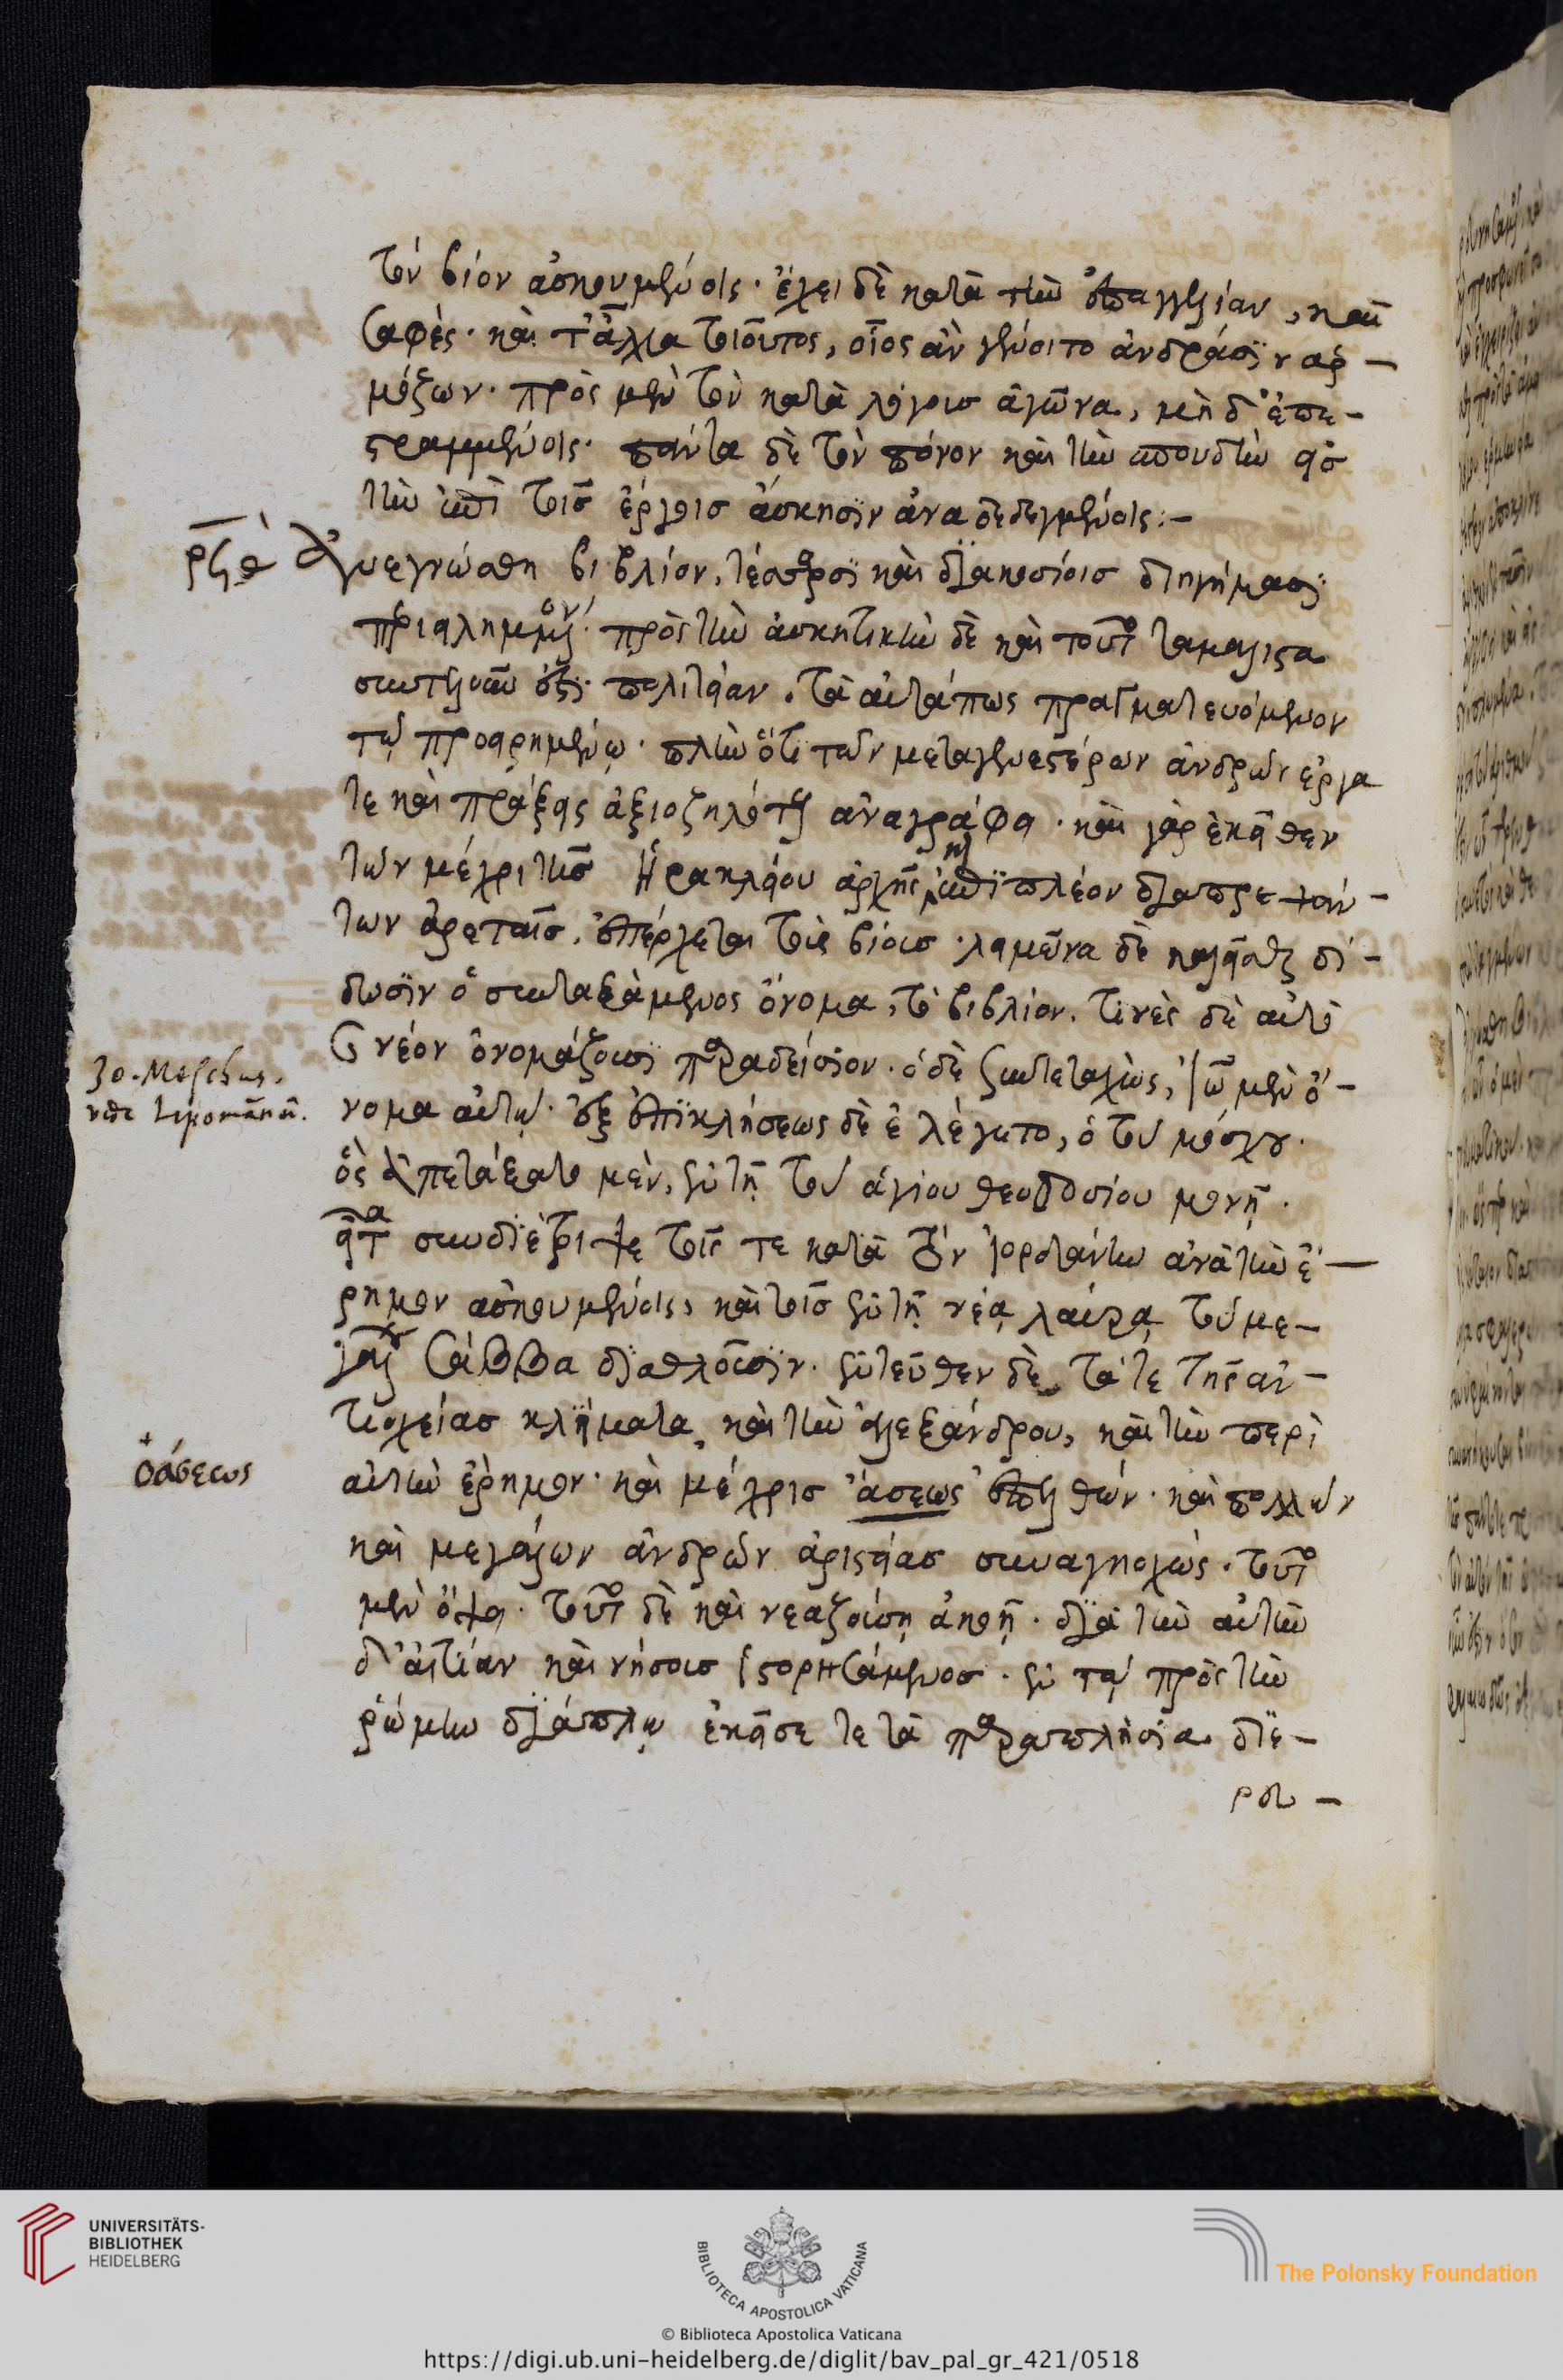 τὸν βίον ἀσκουμένοις· ἔχει δὲ κατὰ τὴν ἐπαγγελίαν, καὶ τὸ
σαφές· καὶ τἆλλα τοιοῦτος, οἷος ἂν γένοιτο ἀνδράσϊν ἁρ-
μόζων· πρὸς μὲν τὸν κατὰ λόγους ἀγῶνα, μὴ δ' ἐπε-
στραμμένοις· πάντα δὲ τὸν πόνον καὶ τὴν σπουδὴν εἰς
τὴν ἐπὶ τοῖς ἔργοις ἄσκησϊν ἀναδεδεγμένοις:-
ρϟθ Ἀνεγνώσθη βιβλίον, τέσσαρσϊ καὶ διακοσίοις διηγήμασϊ
περιειλημμένον· πρὸς τὴν ἀσκητικὴν δὲ καὶ τοῦτο τὰ μάλιστα
συντελοῦν ἐστι πολιτείαν. τὰ αὐτά πως πραγματευόμενον
τῷ προειρημένῳ· πλὴν ὅτι τῶν μεταγενεστέρων ἀνδρῶν ἔργα
τε καὶ πράξεις ἀξιοζηλότους ἀναγράφει· καὶ γὰρ ἐκεῖθεν
τῶν μέχρι τῆς Ἡρακλείου ἀρχῆς καὶ ἐπὶ πλέον διαπρεψάν-
των ἀρεταῖς, ἐπέρχεται τοὺς βίους· λειμῶνα δὲ καλεῖσθαι δί-
δωσϊν ὁ συνταξάμενος ὄνομα, τὸ βιβλίον. τινὲς δὲ αὐτὸ
νέον ὀνομάζουσϊ παραδείσιον· ὁ δὲ συντεταχὼς, ἰῶ μὲν ὄ-
νομα αὐτῷ· ἐξ ἐπϊκλήσεως δὲ ἐλέγετο, ὁ τοῦ μόσχου·
ὃς ἀπετάξατο μὲν, ἐν τῇ τοῦ ἁγίου θεοδοσίου μονῇ·
εἶτα συνδϊέτριψε τοῖς τε κατὰ τὸν ἰορδάνην ἀνὰ τὴν ἔ-
ρημον ἀσκουμένοις, καὶ τοῖς ἐν τῇ νέᾳ λαύρᾳ τοῦ με-
γάλου σάββα διαθλοῦσϊν· ἐντεῦθεν δὲ, τά τε τῆς ἀν-
τιοχείας κλήματα, καὶ τὴν ἀλεξάνδρου, καὶ τὴν περὶ
αὐτὴν ἔρημον· καὶ μέχρις ἄσεως ἐπελθών· καὶ πολλῶν
καὶ μεγάλων ἀνδρῶν ἀριστείας συναγηοχώς· τοῦτο
μὲν ὄψει· τοῦτο δὲ καὶ νεαζούσῃ ἀκοῇ· διὰ τὴν αὐτὴν
δ' αἰτίαν καὶ νήσους ἱστορησάμενος· ἐν τῷ πρὸς τὴν
ῥώμην διάπλῳ ἐκεῖσε τε τὰ παραπλήσϊα. διε-
ρευ-
Jo. Moschus.
vide Lipomanū.
ὀάσεως
UNIVERSITÄTS-
BIBLIOTHEK
HEIDELBERG
BIBLIOTECA APOSTOLICA VATICANA
The Polonsky Foundation
© Biblioteca Apostolica Vaticana
https://digi.ub.uni-heidelberg.de/diglit/bav_pal_gr_421/0518